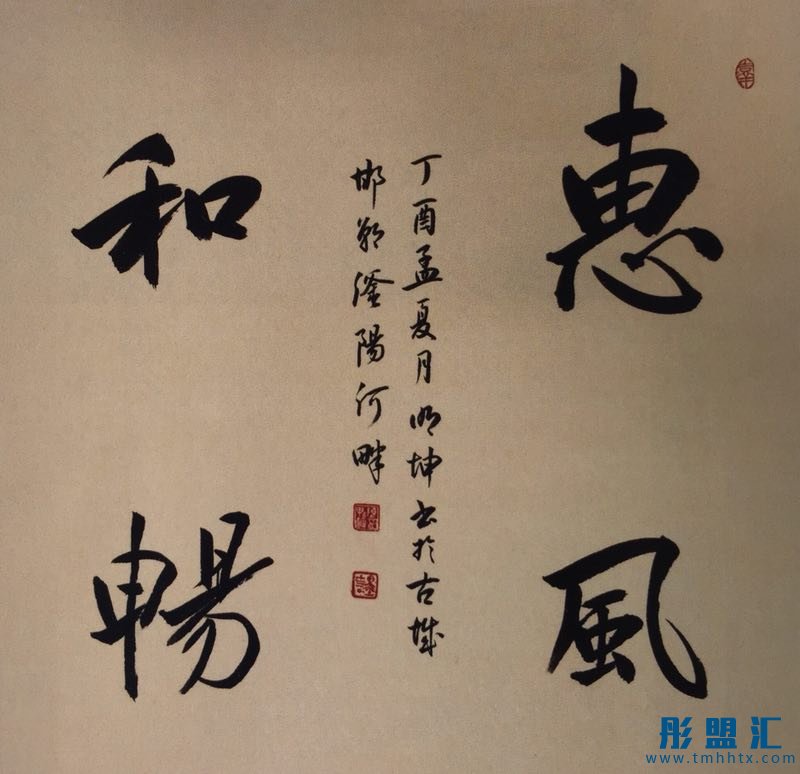 惠風
和暢
丁酉孟夏月明坤书於古城
邯郸滏陽河畔
彤盟汇
www.tmhhtx.com